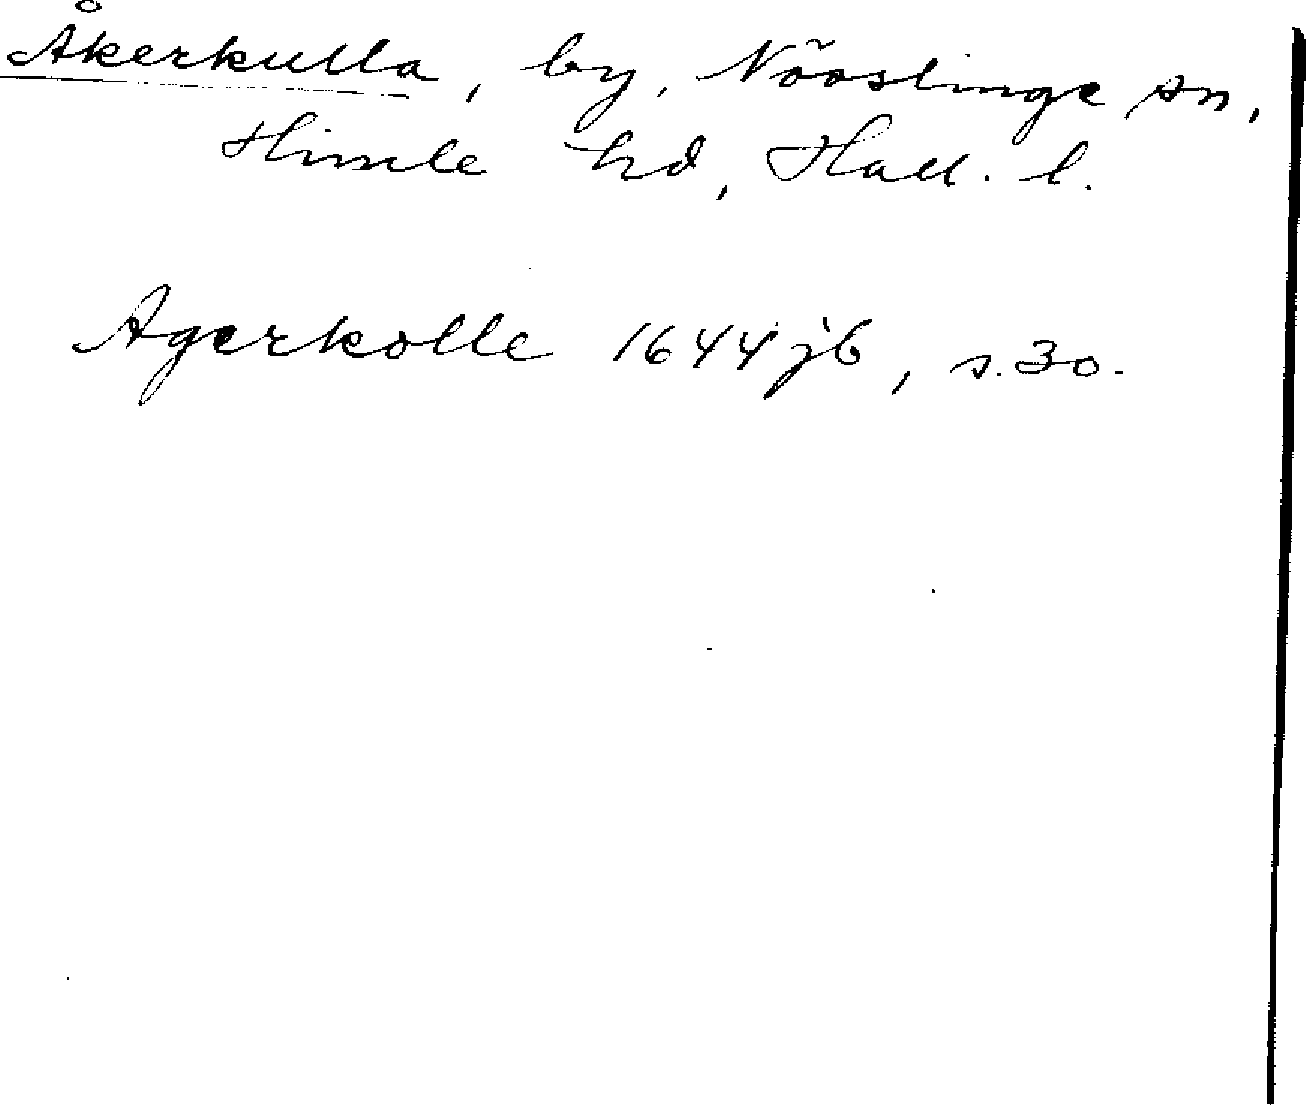 Åkerkulla, by, Nösslinge sn,
Himle hd, Hall. l.
Agerkolle 1644 jb, s. 30.